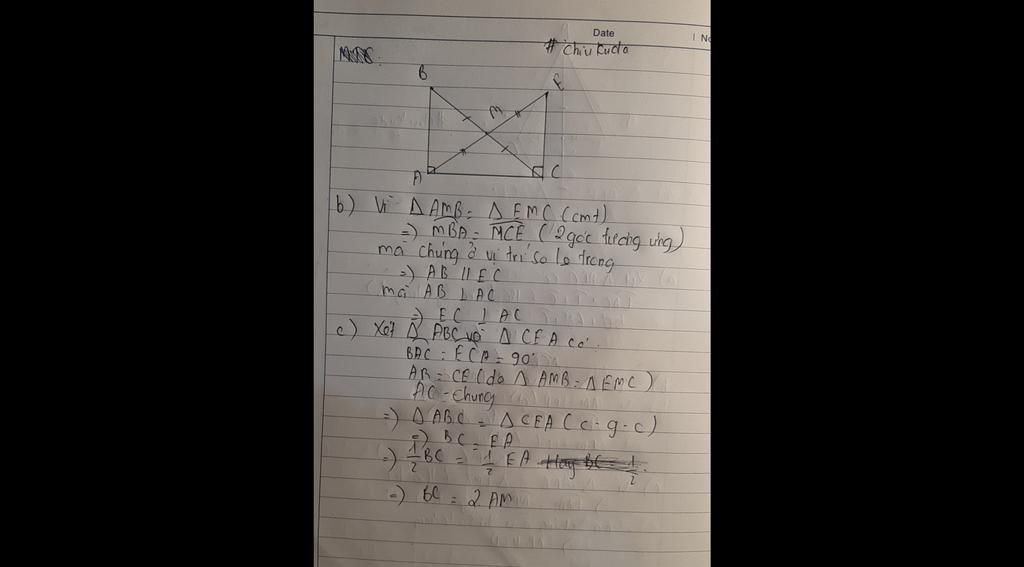 Date
No
# Chiu Kudo
B
E
M
A
C
b) Vì Δ AMB = Δ EMC (cmt)
=) MBA = MCE ( 2 góc tương ứng)
mà chúng ở vị trí so le trong
=) AB // EC
mà AB ⊥ AC
=) EC ⊥ AC
c) Xét Δ ABC và Δ CEA có:
BAC = ECA = 90°
AB = CE ( do Δ AMB = Δ EMC )
AC - chung
=) Δ ABC = Δ CEA ( c - g - c )
=) BC = EA
=) 1/2 BC = 1/2 EA Hay BC = 1/2
=) BC = 2 AM